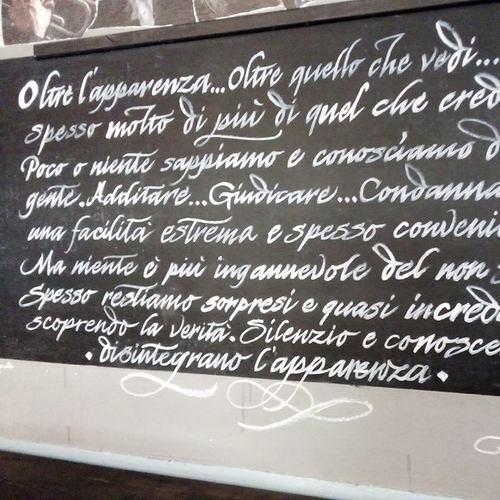 Oltre l'apparenza... Oltre quello che vedi...
spesso molto di più di quel che cred
Poco o niente sappiamo e conosciamo d
gente. Additare... Giudicare... Condanna
una facilità estrema e spesso conveni
Ma niente è più ingannevole del non-
Spesso restiamo sorpresi e quasi incred
scoprendo la verità. Silenzio e conosce
. disintegrano l'apparenza.